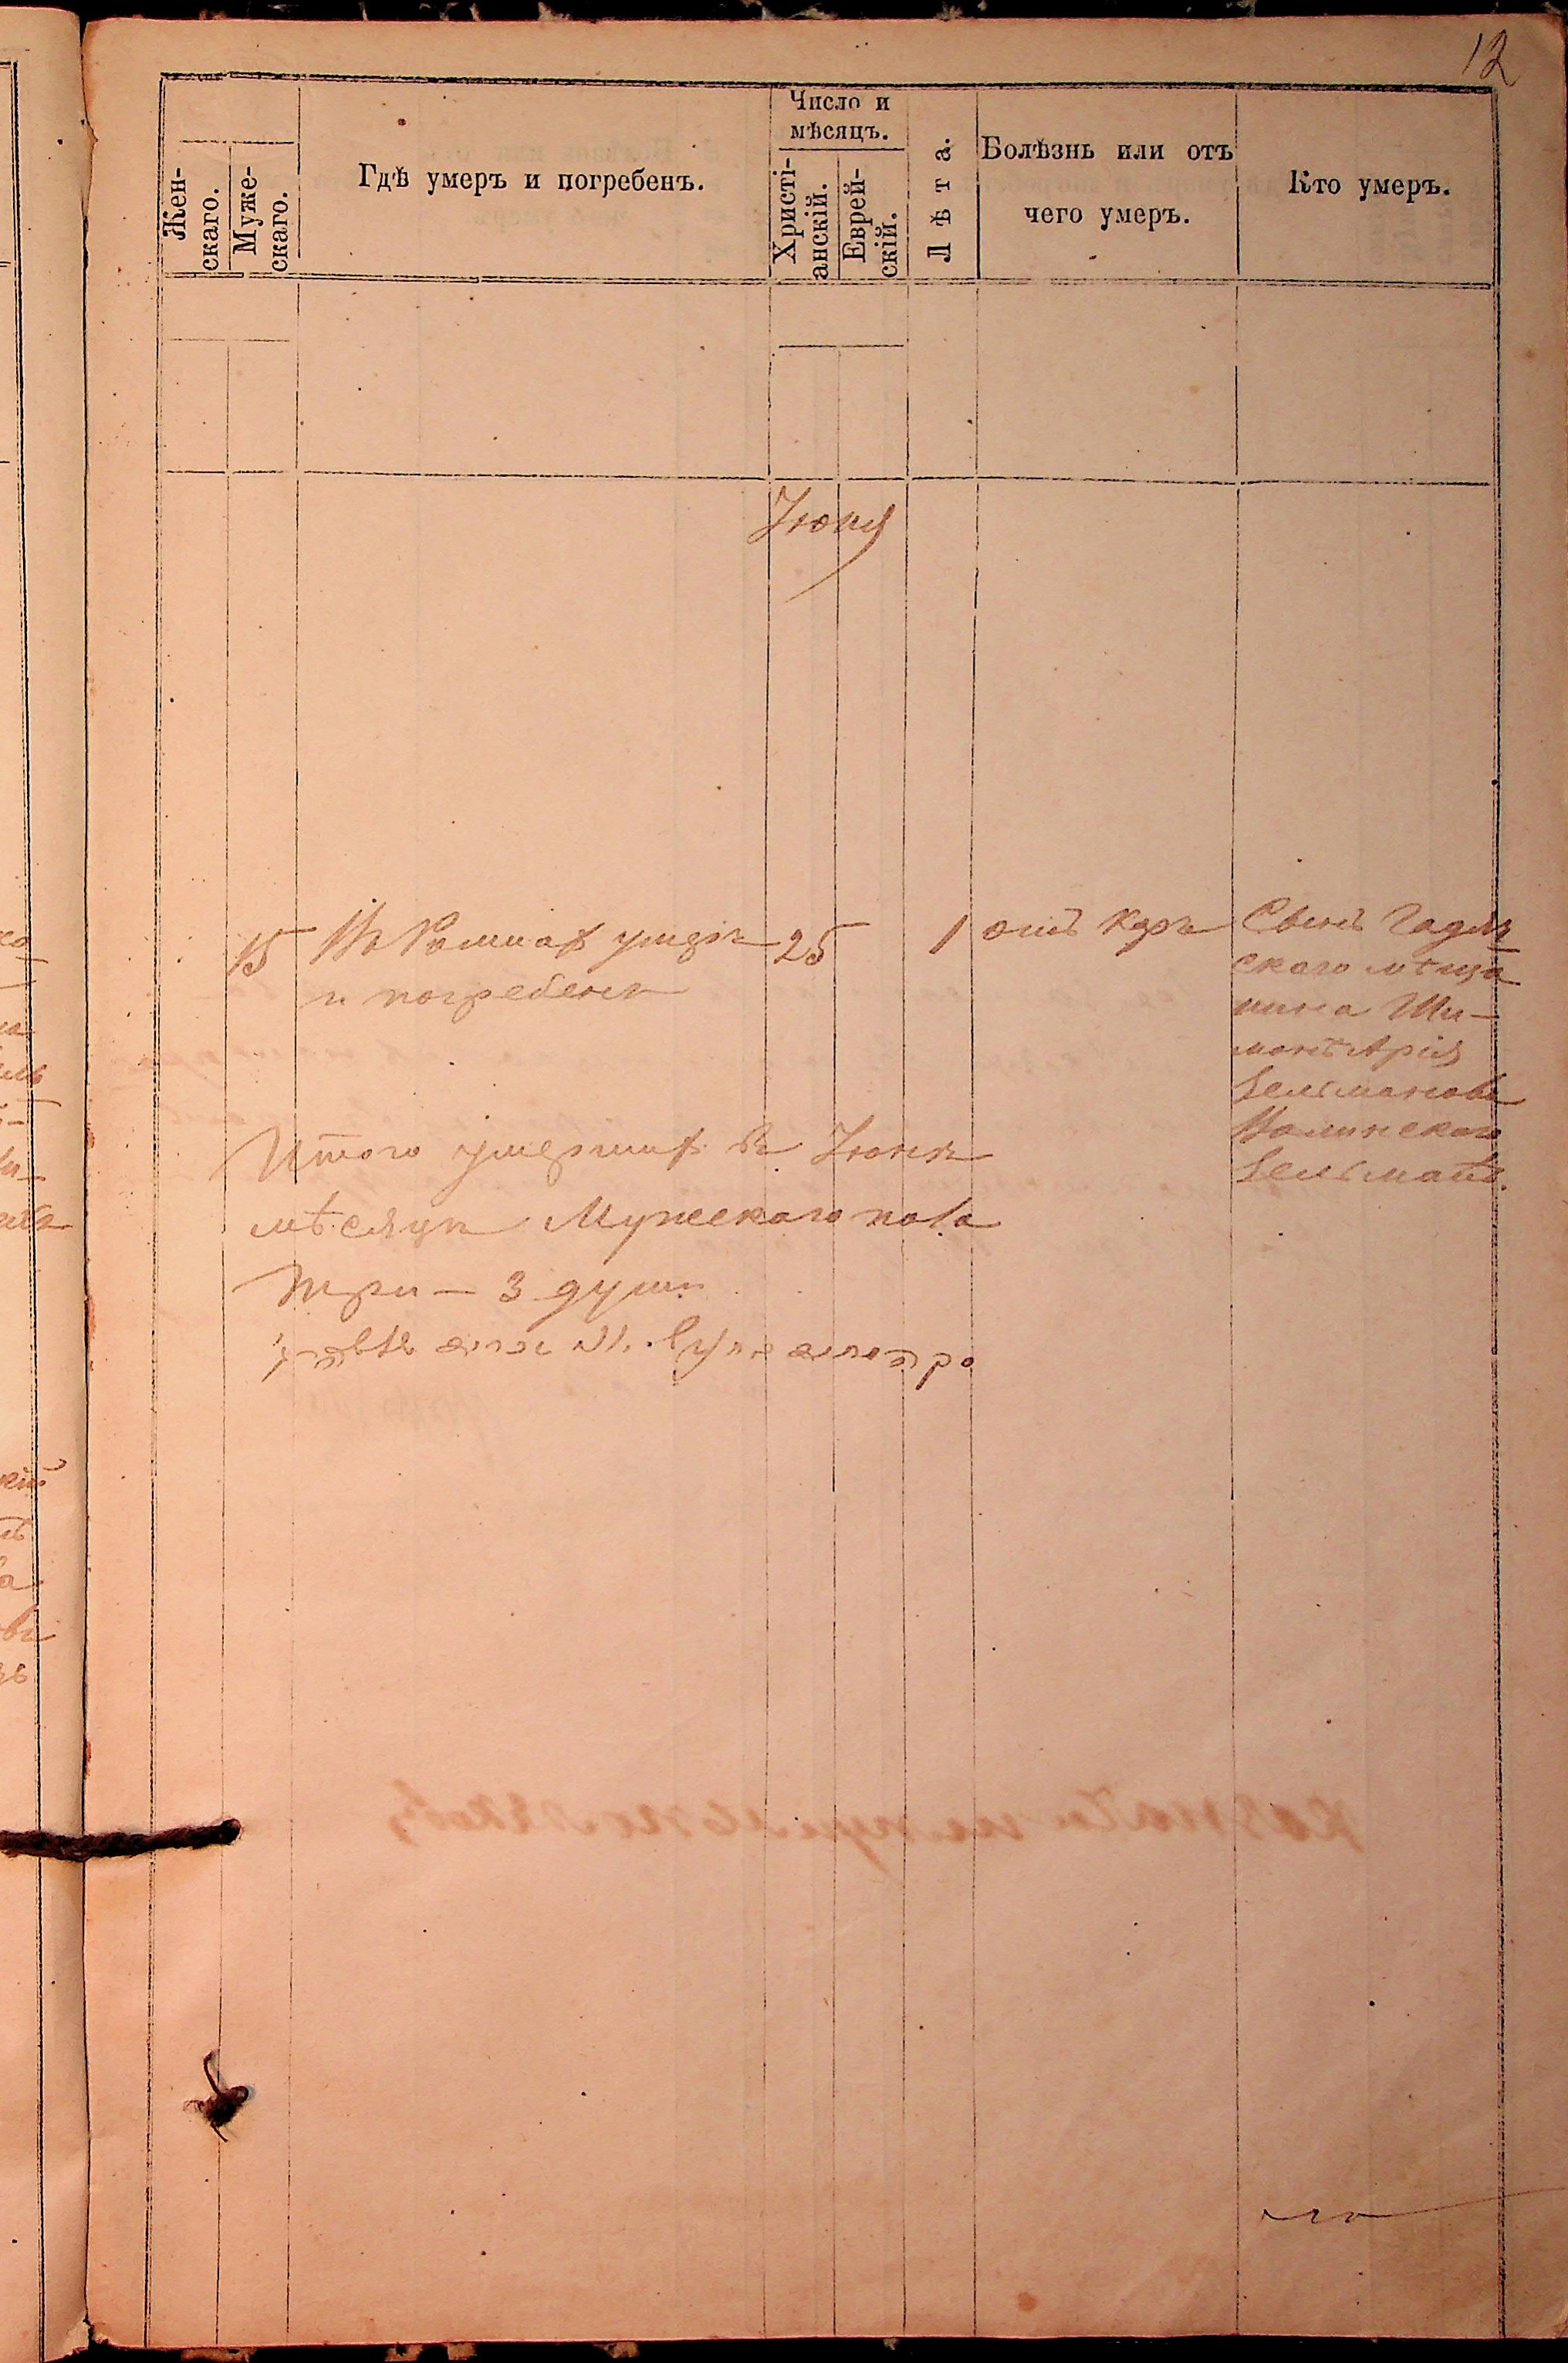 12
Жен-
скаго.
Муже-
скаго.
Гдѣ умеръ и погребенъ.
Число и
мѣсяцъ.
Христі-
анскій.
Еврей-
скій.
Лѣта.
Болѣзнь или отъ
чего умеръ.
Кто умеръ.
Іюня
15
Въ Ромнах умеръ
и погребенъ
25
1
отъ Кори
Сынъ Гадяч
скаго мѣща
нина Ши-
монъ Арія
Зельмановъ
Зельманъ.
Итого умерших въ Іюнѣ
мѣсяцѣ Мужескаго пола
три — 3 души